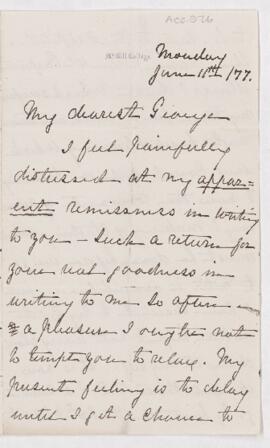 Acc. 976
McGill College
Monday
June 18th /77.
My dearest George
I feel painfully
distressed at my appar=
ent remissness in writing
to you — such a return for
your real goodness in
writing to me so often —
a pleasure I ought not
to tempt you to relax. My
present feeling is to delay
until I get a chance to